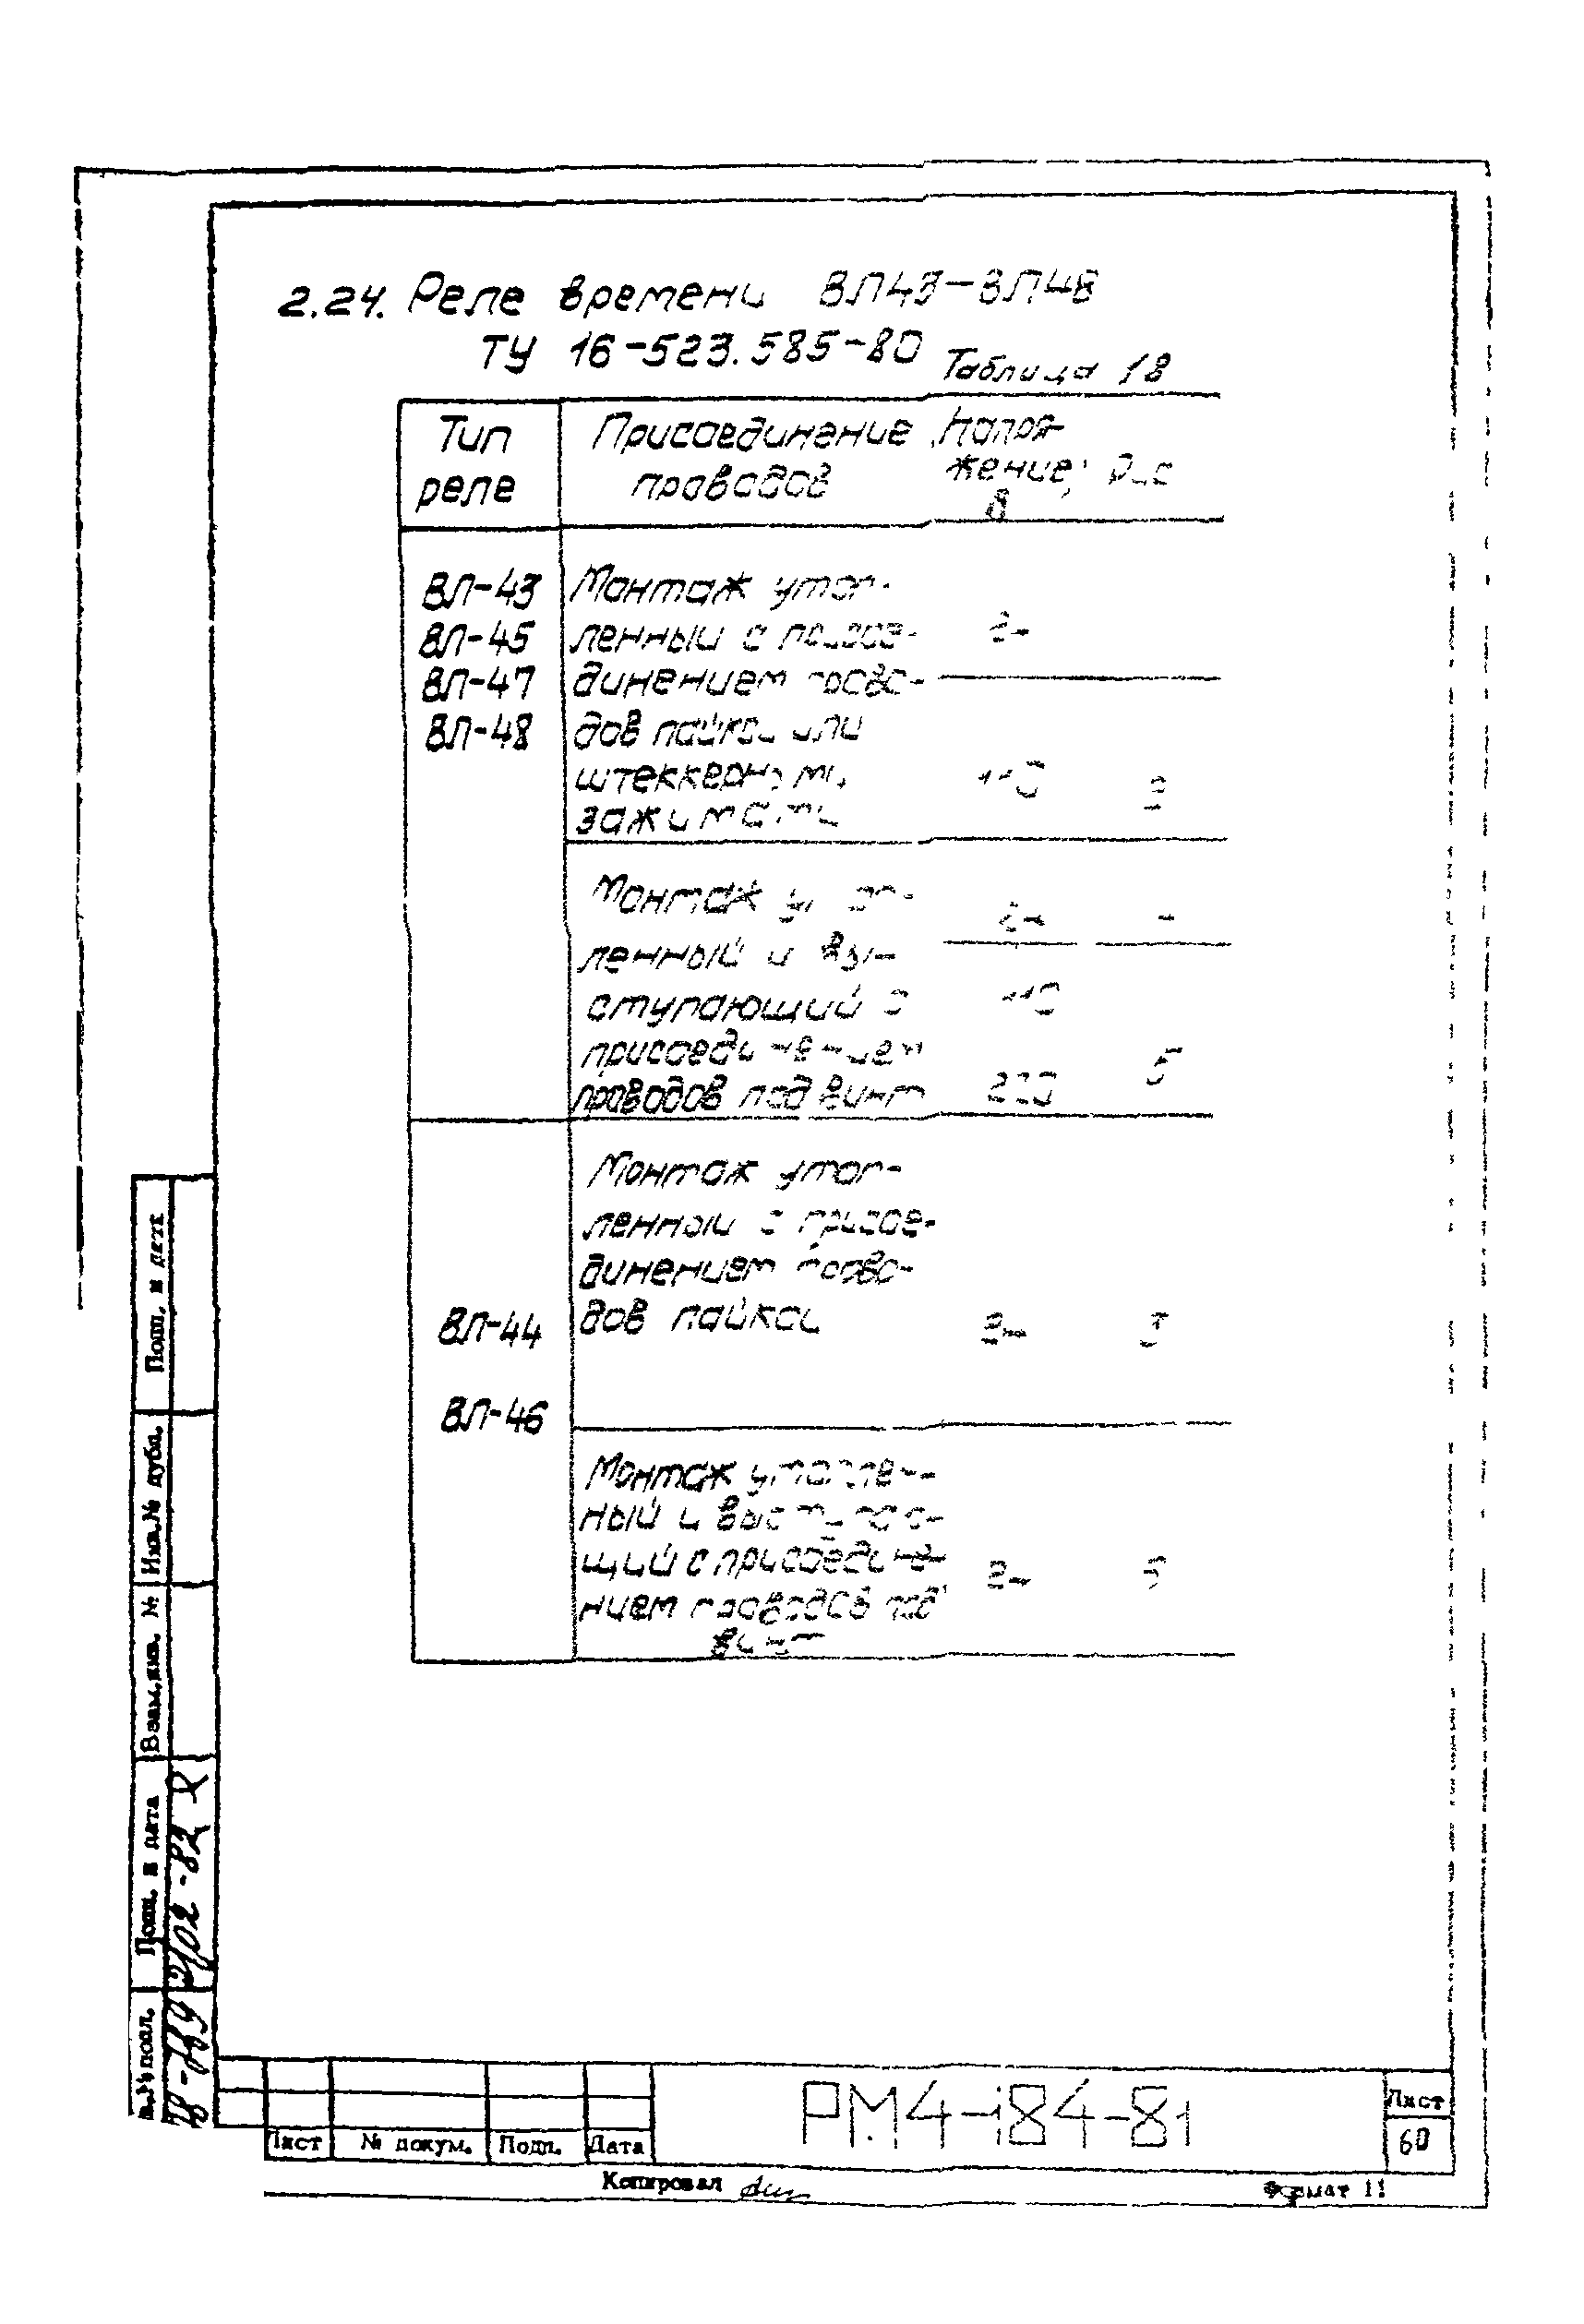 2.24. Реле времени ВЛ43-ВЛ48
ТУ 16-523.585-80
Таблица 18
Тип реле
Присоединение проводов
Напря-
жение,
В
Рис
ВЛ-43
ВЛ-45
ВЛ-47
ВЛ-48
Монтаж утоп-
ленный с присое-
динением прово-
дов пайкой или
штеккерными
зажимами
24
110
Монтаж утоп-
ленный и вы-
ступающий с
присоединением
проводов под винт
24
-
110
220
5
ВЛ-44
ВЛ-46
Монтаж утоп-
ленный с присое-
динением прово-
дов пайкой
24
3
Монтаж утоплен-
ный и выступаю-
щий с присоедине-
нием проводов под
винт
24
5
Подп. и дата
Инв.№ дубл.
Взам.инв. №
Подп. и дата
в.№ подл.
Лист
№ докум.
Подп.
Дата
РМ4-184-81
Лист
60
Копировал
Формат 11